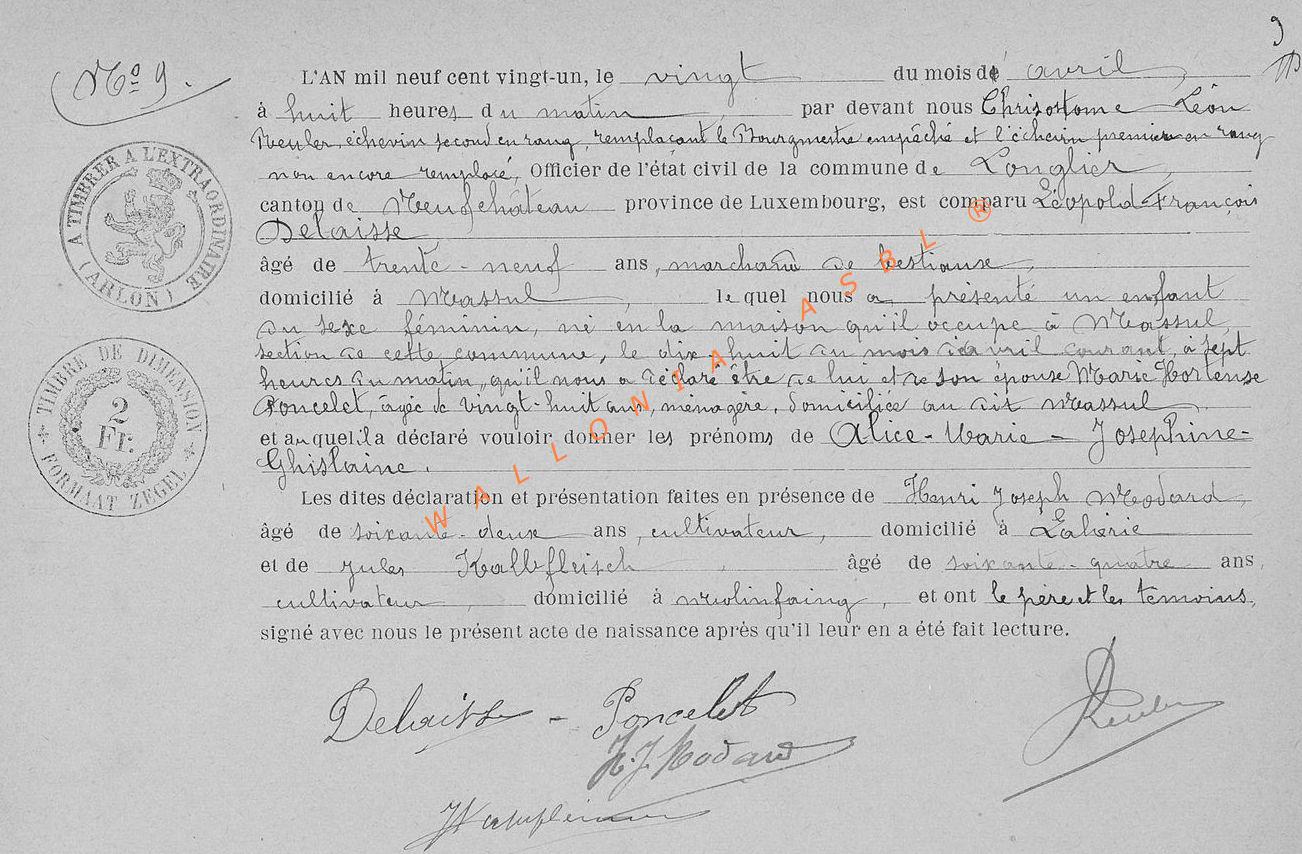 9
Nº 9.
L'AN mil neuf cent vingt-un, le vingt du mois de avril,
à huit heures du matin, par devant nous Chrisostome Léon
Reuler, échevin second en rang, remplaçant le Bourgmestre empêché et l'échevin premier en rang
non encore remplacé, Officier de l'état civil de la commune de Longlier,
canton de Neufchâteau province de Luxembourg, est comparu Léopold-François
Delaisse
âgé de trente-neuf ans, marchand de bestiaux,
domicilié à Massul, lequel nous a présenté un enfant
du sexe féminin, né en la maison qu'il occupe à Massul,
section de cette commune, le dix-huit du mois d'avril courant, à sept
heures du matin, qu'il nous a déclaré être de lui et de son épouse Marie Hortense
Poncelet, âgée de vingt-huit ans, ménagère, domiciliée au dit Massul
et auquel il a déclaré vouloir donner les prénoms de Alice-Marie-Josephine-
Ghislaine.
Les dites déclaration et présentation faites en présence de Henri Joseph Modard,
âgé de soixante-deux ans, cultivateur, domicilié à Lahérie
et de Jules Kalbfleisch âgé de soixante-quatre ans,
cultivateur, domicilié à Molinfaing, et ont le père et les témoins,
signé avec nous le présent acte de naissance après qu'il leur en a été fait lecture.
Delaisse - Poncelet
H. J. Modard
Reuler
A TIMBRER A L'EXTRAORDINAIRE
(ARLON)
TIMBRE DE DIMENSION
2
Fr.
FORMAAT ZEGEL
WALLONIA ASBL ®